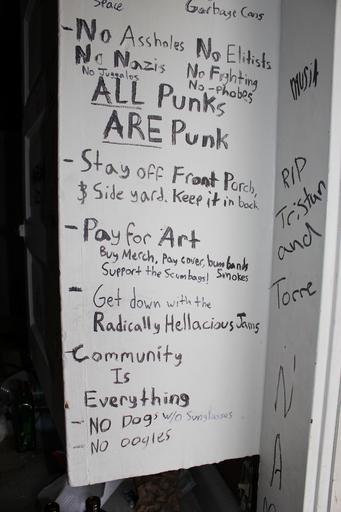 Space Garbage Cans
- No Assholes No Elitists
No Nazis No Fighting
No Juggalos No -phobes
ALL Punks
ARE Punk
- Stay off Front Porch,
$ Side yard. Keep it in back
- Pay for Art
Buy Merch, Pay cover, bum bands Smokes
Support the Scumbags!
- Get down with the
Radically Hellacious Jams
- Community
Is
Everything
- No Dogs w/o Sunglasses
- No oogles
musik
RIP
Tristan
and
Torre
N
A